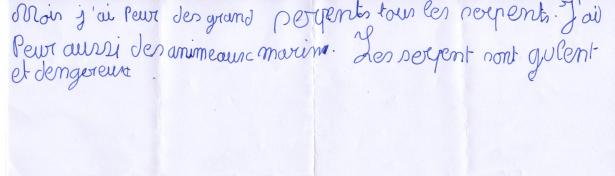 Mois j'ai peur des grand serpents tous les serpents. J'ai
Peur aussi des animeaux marins. Les serpent sont gulent
et dengereux